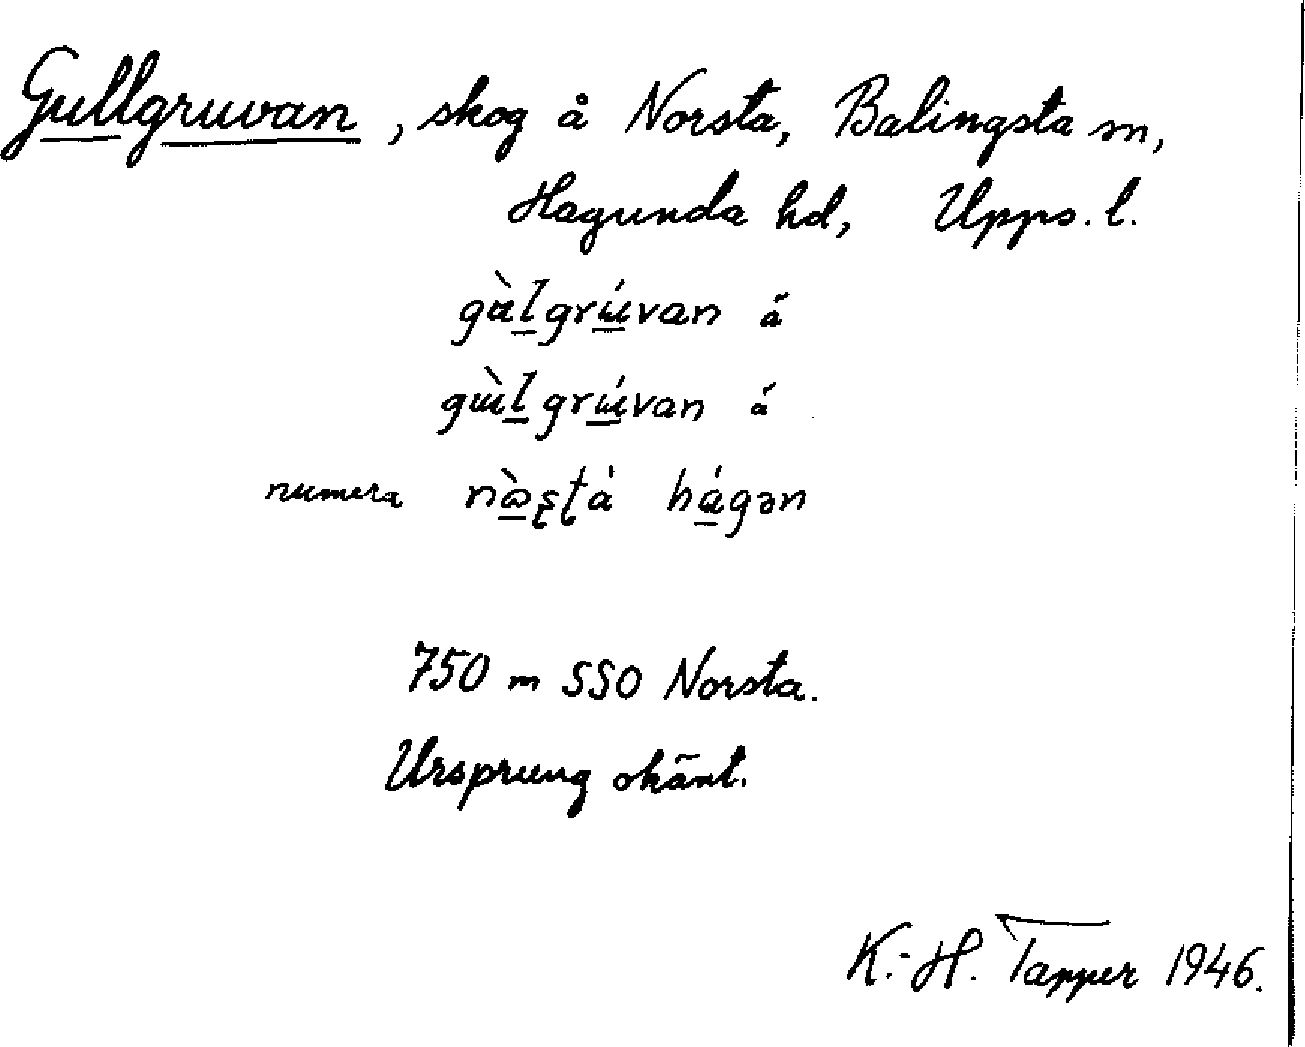 Gullgruvan, skog å Norsta, Balingsta sn,
Hagunda hd, Upps. l.
gὰl̲grɯ̲́van ă
gɯ̀l̲grɯ̲́van ă
numera nὼ̲ʂʈá há̲gən
750 m SSO Norsta.
Ursprung okänt.
K.-H. Tapper 1946.